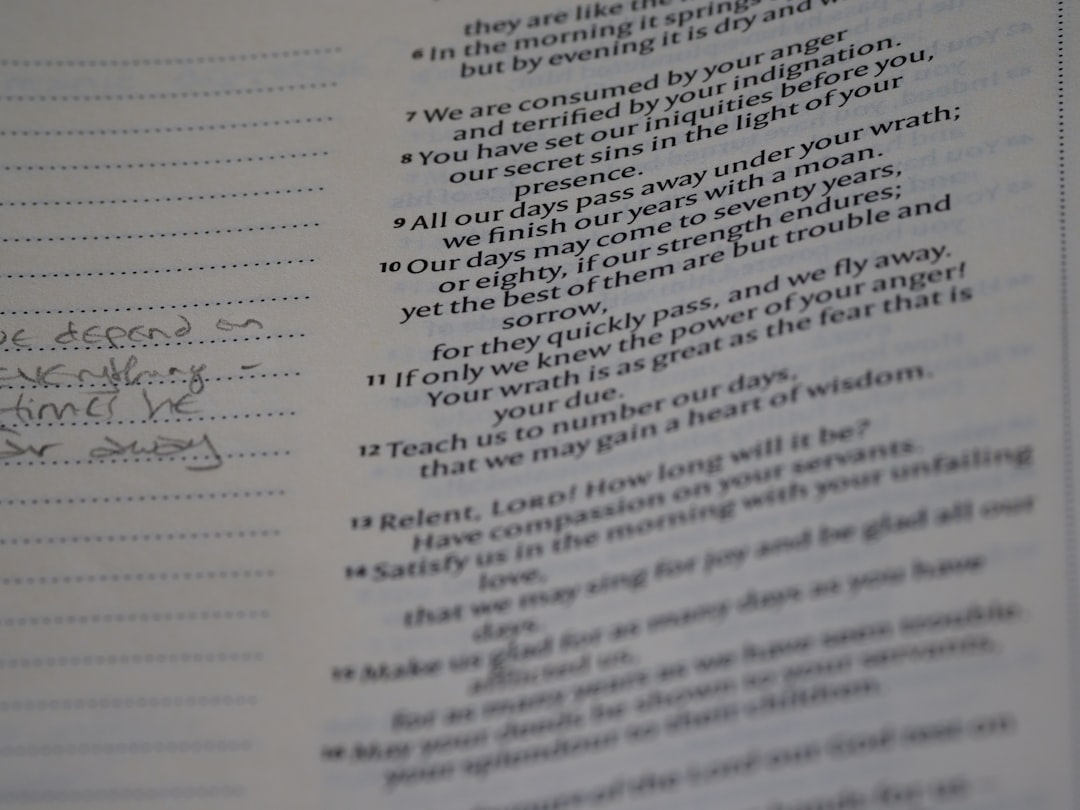 be depend on
everything -
times he
far away
they are like the
6 In the morning it springs
but by evening it is dry and
7 We are consumed by your anger
and terrified by your indignation.
8 You have set our iniquities before you,
our secret sins in the light of your
presence.
9 All our days pass away under your wrath;
we finish our years with a moan.
10 Our days may come to seventy years,
or eighty, if our strength endures;
yet the best of them are but trouble and
sorrow,
for they quickly pass, and we fly away.
11 If only we knew the power of your anger!
Your wrath is as great as the fear that is
your due.
12 Teach us to number our days,
that we may gain a heart of wisdom.
13 Relent, LORD! How long will it be?
Have compassion on your servants.
14 Satisfy us in the morning with your unfailing
love,
that we may sing for joy and be glad all our
days.
15 Make us glad for as many days as you have
afflicted us,
for as many years as we have seen trouble.
16 May your deeds be shown to your servants,
your splendour to their children.
of the Lord our God rest on